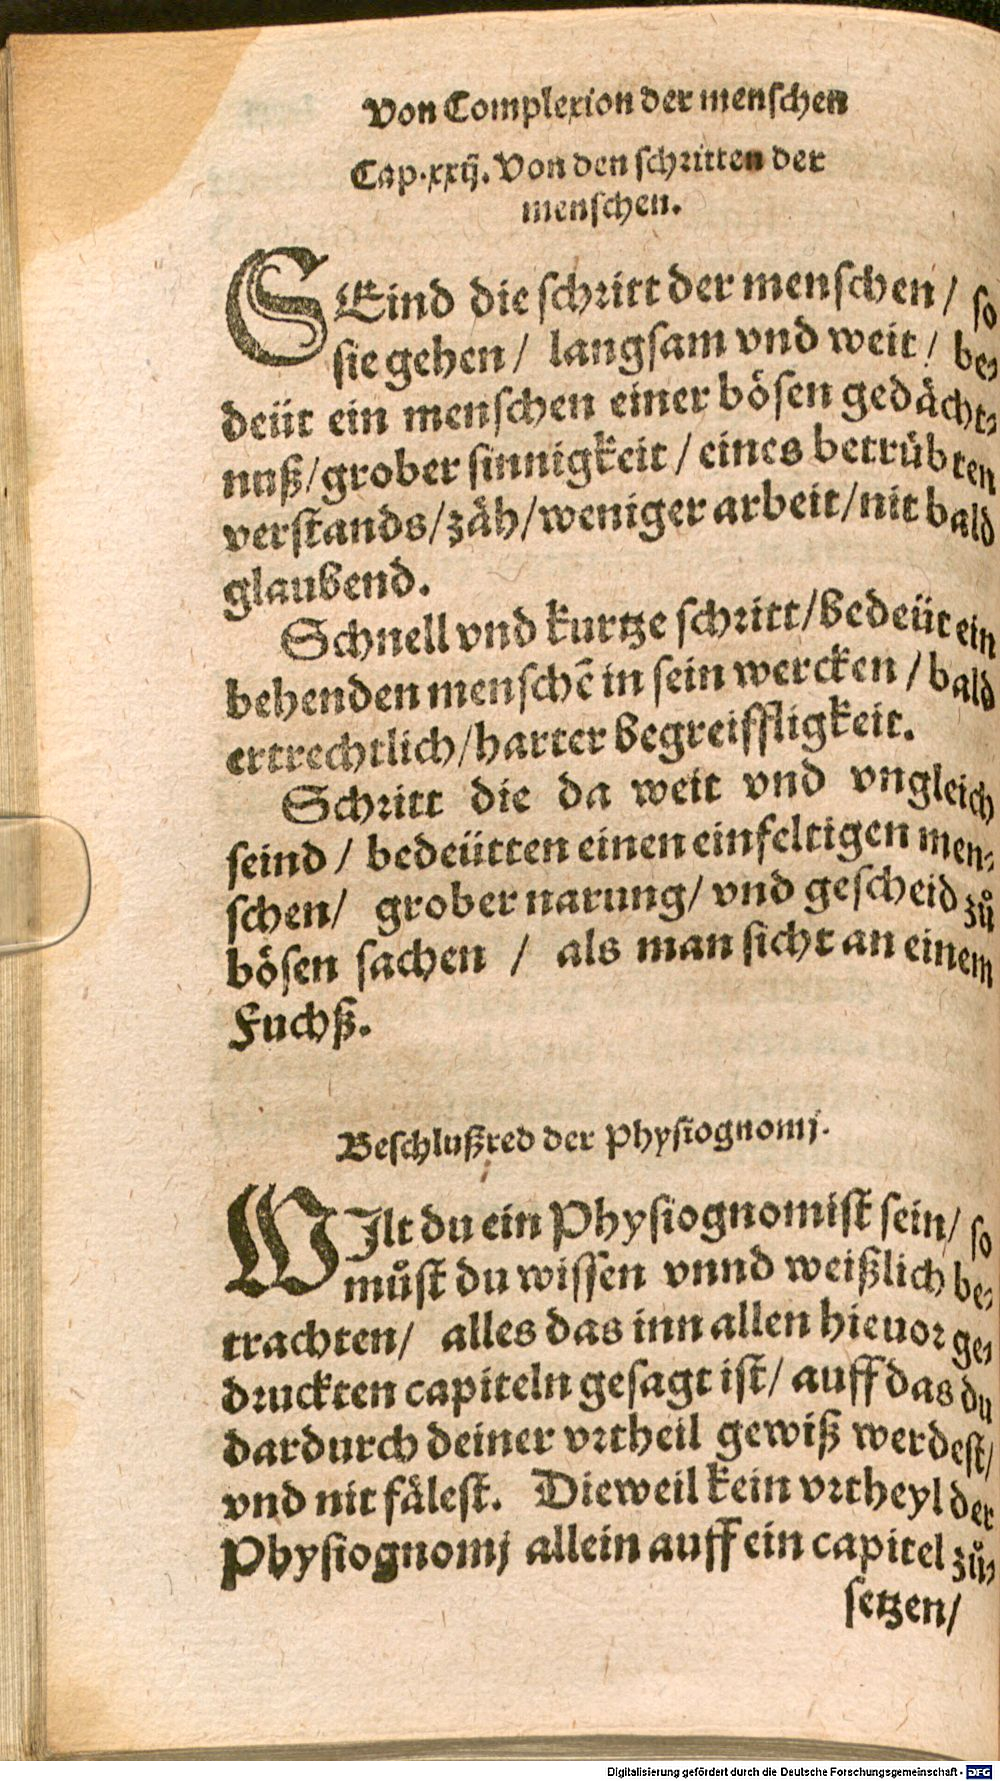 Von Complexion der menſchen
Cap. xxij. Von den ſchritten der
menſchen.
SEind die ſchritt der menſchen / ſo
ſie gehen / langſam vnd weit / be⸗
deüt ein menſchen einer böſen gedächt⸗
nuß/grober ſinnigkeit / eines betrübten
verſtands/zäh/weniger arbeit/nit bald
glaubend.
Schnell vnd kurtze ſchritt/bedeüt ein
behenden menſchē in ſein wercken / bald
ertrechtlich/harter begreiffligkeit.
Schritt die da weit vnd vngleich
ſeind / bedeütten einen einfeltigen men⸗
ſchen/ grober narung/ vnd geſcheid zů
böſen ſachen / als man ſicht an einem
Fuchß.
Beſchlußred der Phyſiognomj.
WIlt du ein Phyſiognomiſt ſein/ ſo
můſt du wiſſen vnnd weißlich be⸗
trachten/ alles das inn allen hieuor ge⸗
druckten capiteln geſagt iſt/ auff das du
dardurch deiner vrtheil gewiß werdeſt/
vnd nit fäleſt. Dieweil kein vrtheyl der
Phyſiognomj allein auff ein capitel zů⸗
ſetzen/
Digitalisierung gefördert durch die Deutsche Forschungsgemeinschaft - DFG